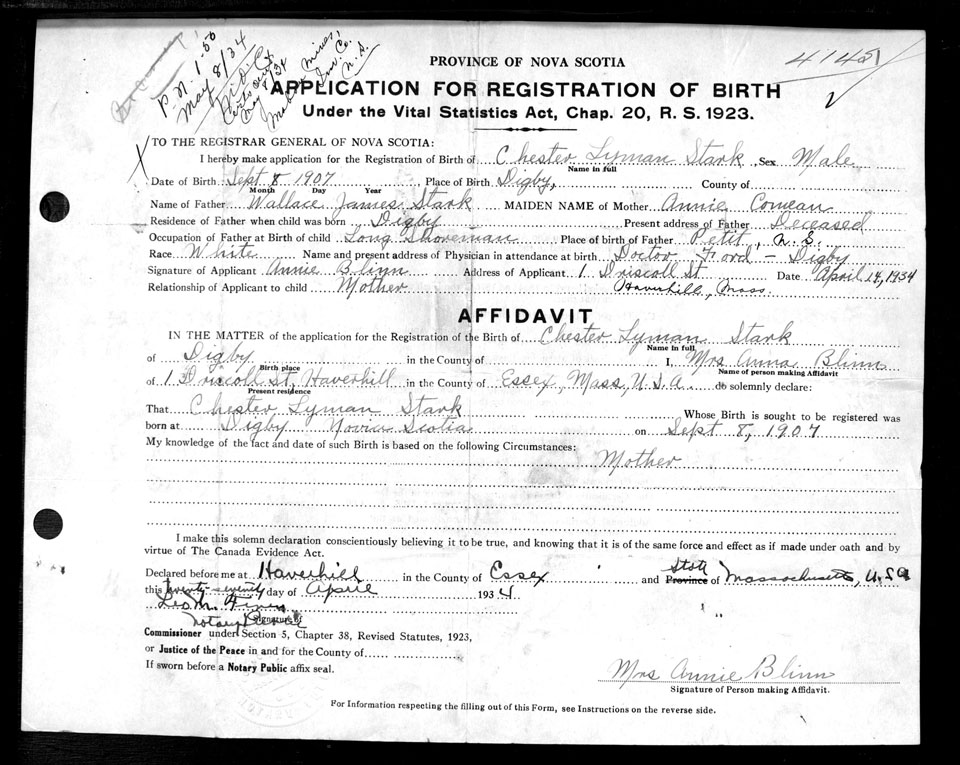 P.N. 1.50
May 8/34
May 8/34
PROVINCE OF NOVA SCOTIA
APPLICATION FOR REGISTRATION OF BIRTH
Under the Vital Statistics Act, Chap. 20, R. S. 1923.
TO THE REGISTRAR GENERAL OF NOVA SCOTIA:
I hereby make application for the Registration of Birth of Chester Lyman Stark, Sex Male
Name in full
Date of Birth Sept 8 1907, Place of Birth Digby, County of
Month Day Year
Name of Father Wallace James Stark MAIDEN NAME of Mother Annie Comeau
Residence of Father when child was born Digby Present address of Father Deceased
Occupation of Father at Birth of child Long Shoreman Place of birth of Father Petit, N.S.
Race White Name and present address of Physician in attendance at birth Doctor Ford - Digby
Signature of Applicant Annie Blinn Address of Applicant 1 Driscoll St Date April 14, 1934
Relationship of Applicant to child Mother Haverhill, Mass.
AFFIDAVIT
IN THE MATTER of the application for the Registration of the Birth of Chester Lyman Stark
Name in full
of Digby in the County of I, Mrs Anna Blinn
Birth place Name of person making Affidavit
of 1 Driscoll St, Haverhill in the County of Essex, Mass, U.S.A. do solemnly declare:
Present residence
That Chester Lyman Stark Whose Birth is sought to be registered was
born at Digby Novia Scotia on Sept 8, 1907
My knowledge of the fact and date of such Birth is based on the following Circumstances:
Mother
I make this solemn declaration conscientiously believing it to be true, and knowing that it is of the same force and effect as if made under oath and by
virtue of The Canada Evidence Act.
Declared before me at Haverhill in the County of Essex and State Province of Massachusetts, U.S.A
this twenty seventh day of April 1934
Leo M.
Notary Public Signature of
Commissioner under Section 5, Chapter 38, Revised Statutes, 1923,
or Justice of the Peace in and for the County of
If sworn before a Notary Public affix seal.
Mrs Annie Blinn
Signature of Person making Affidavit.
For Information respecting the filling out of this Form, see Instructions on the reverse side.